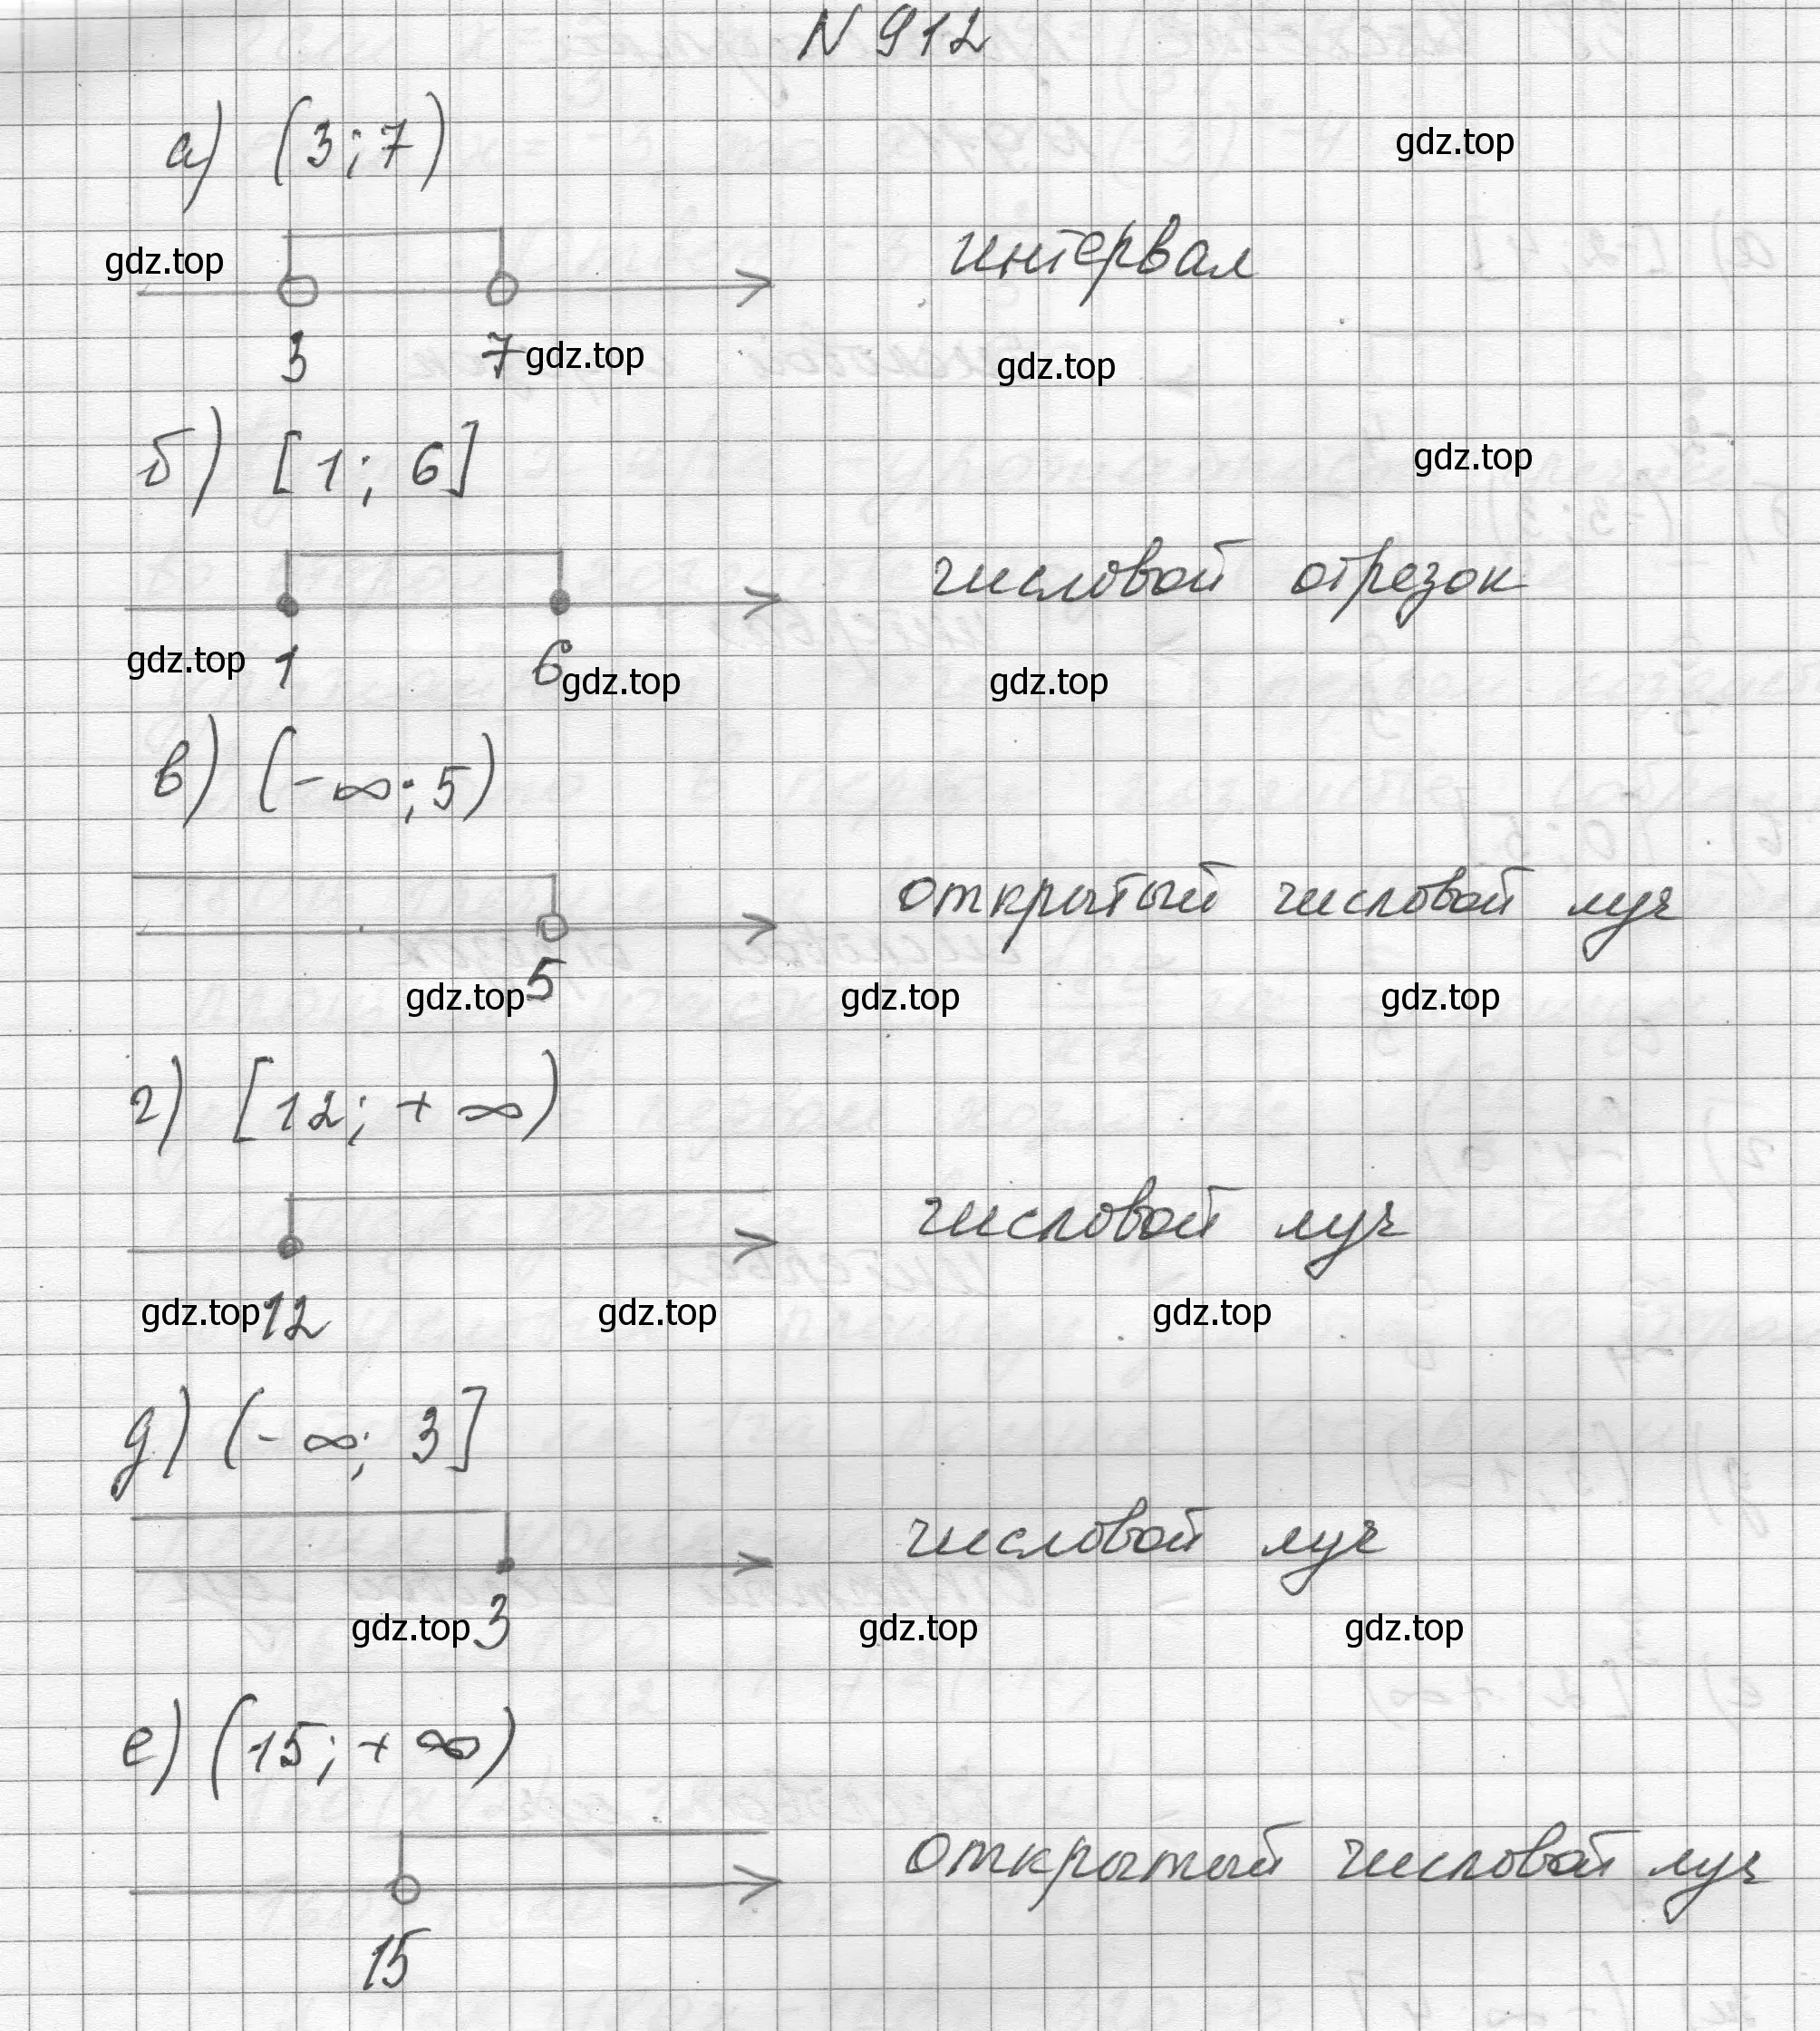 N 912
а) (3; 7)
gdz.top
gdz.top
интервал
3 7 gdz.top gdz.top
б) [1; 6]
gdz.top
числовой отрезок
gdz.top 1 6 gdz.top gdz.top
в) (-∞; 5)
открытый числовой луч
gdz.top 5 gdz.top gdz.top
г) [12; +∞)
числовой луч
gdz.top 12 gdz.top gdz.top
д) (-∞; 3]
числовой луч
gdz.top 3 gdz.top gdz.top
е) (15; +∞)
открытый числовой луч
15